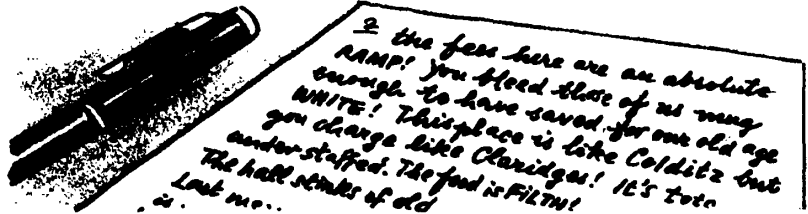 2
the fees here are an absolute
RAMP! You bleed those of us mug
enough to have saved for our old age
WHITE! This place is like Colditz but
you charge like Claridges! It's
understaffed. The food is FILTH!
The hall stinks of old
Last